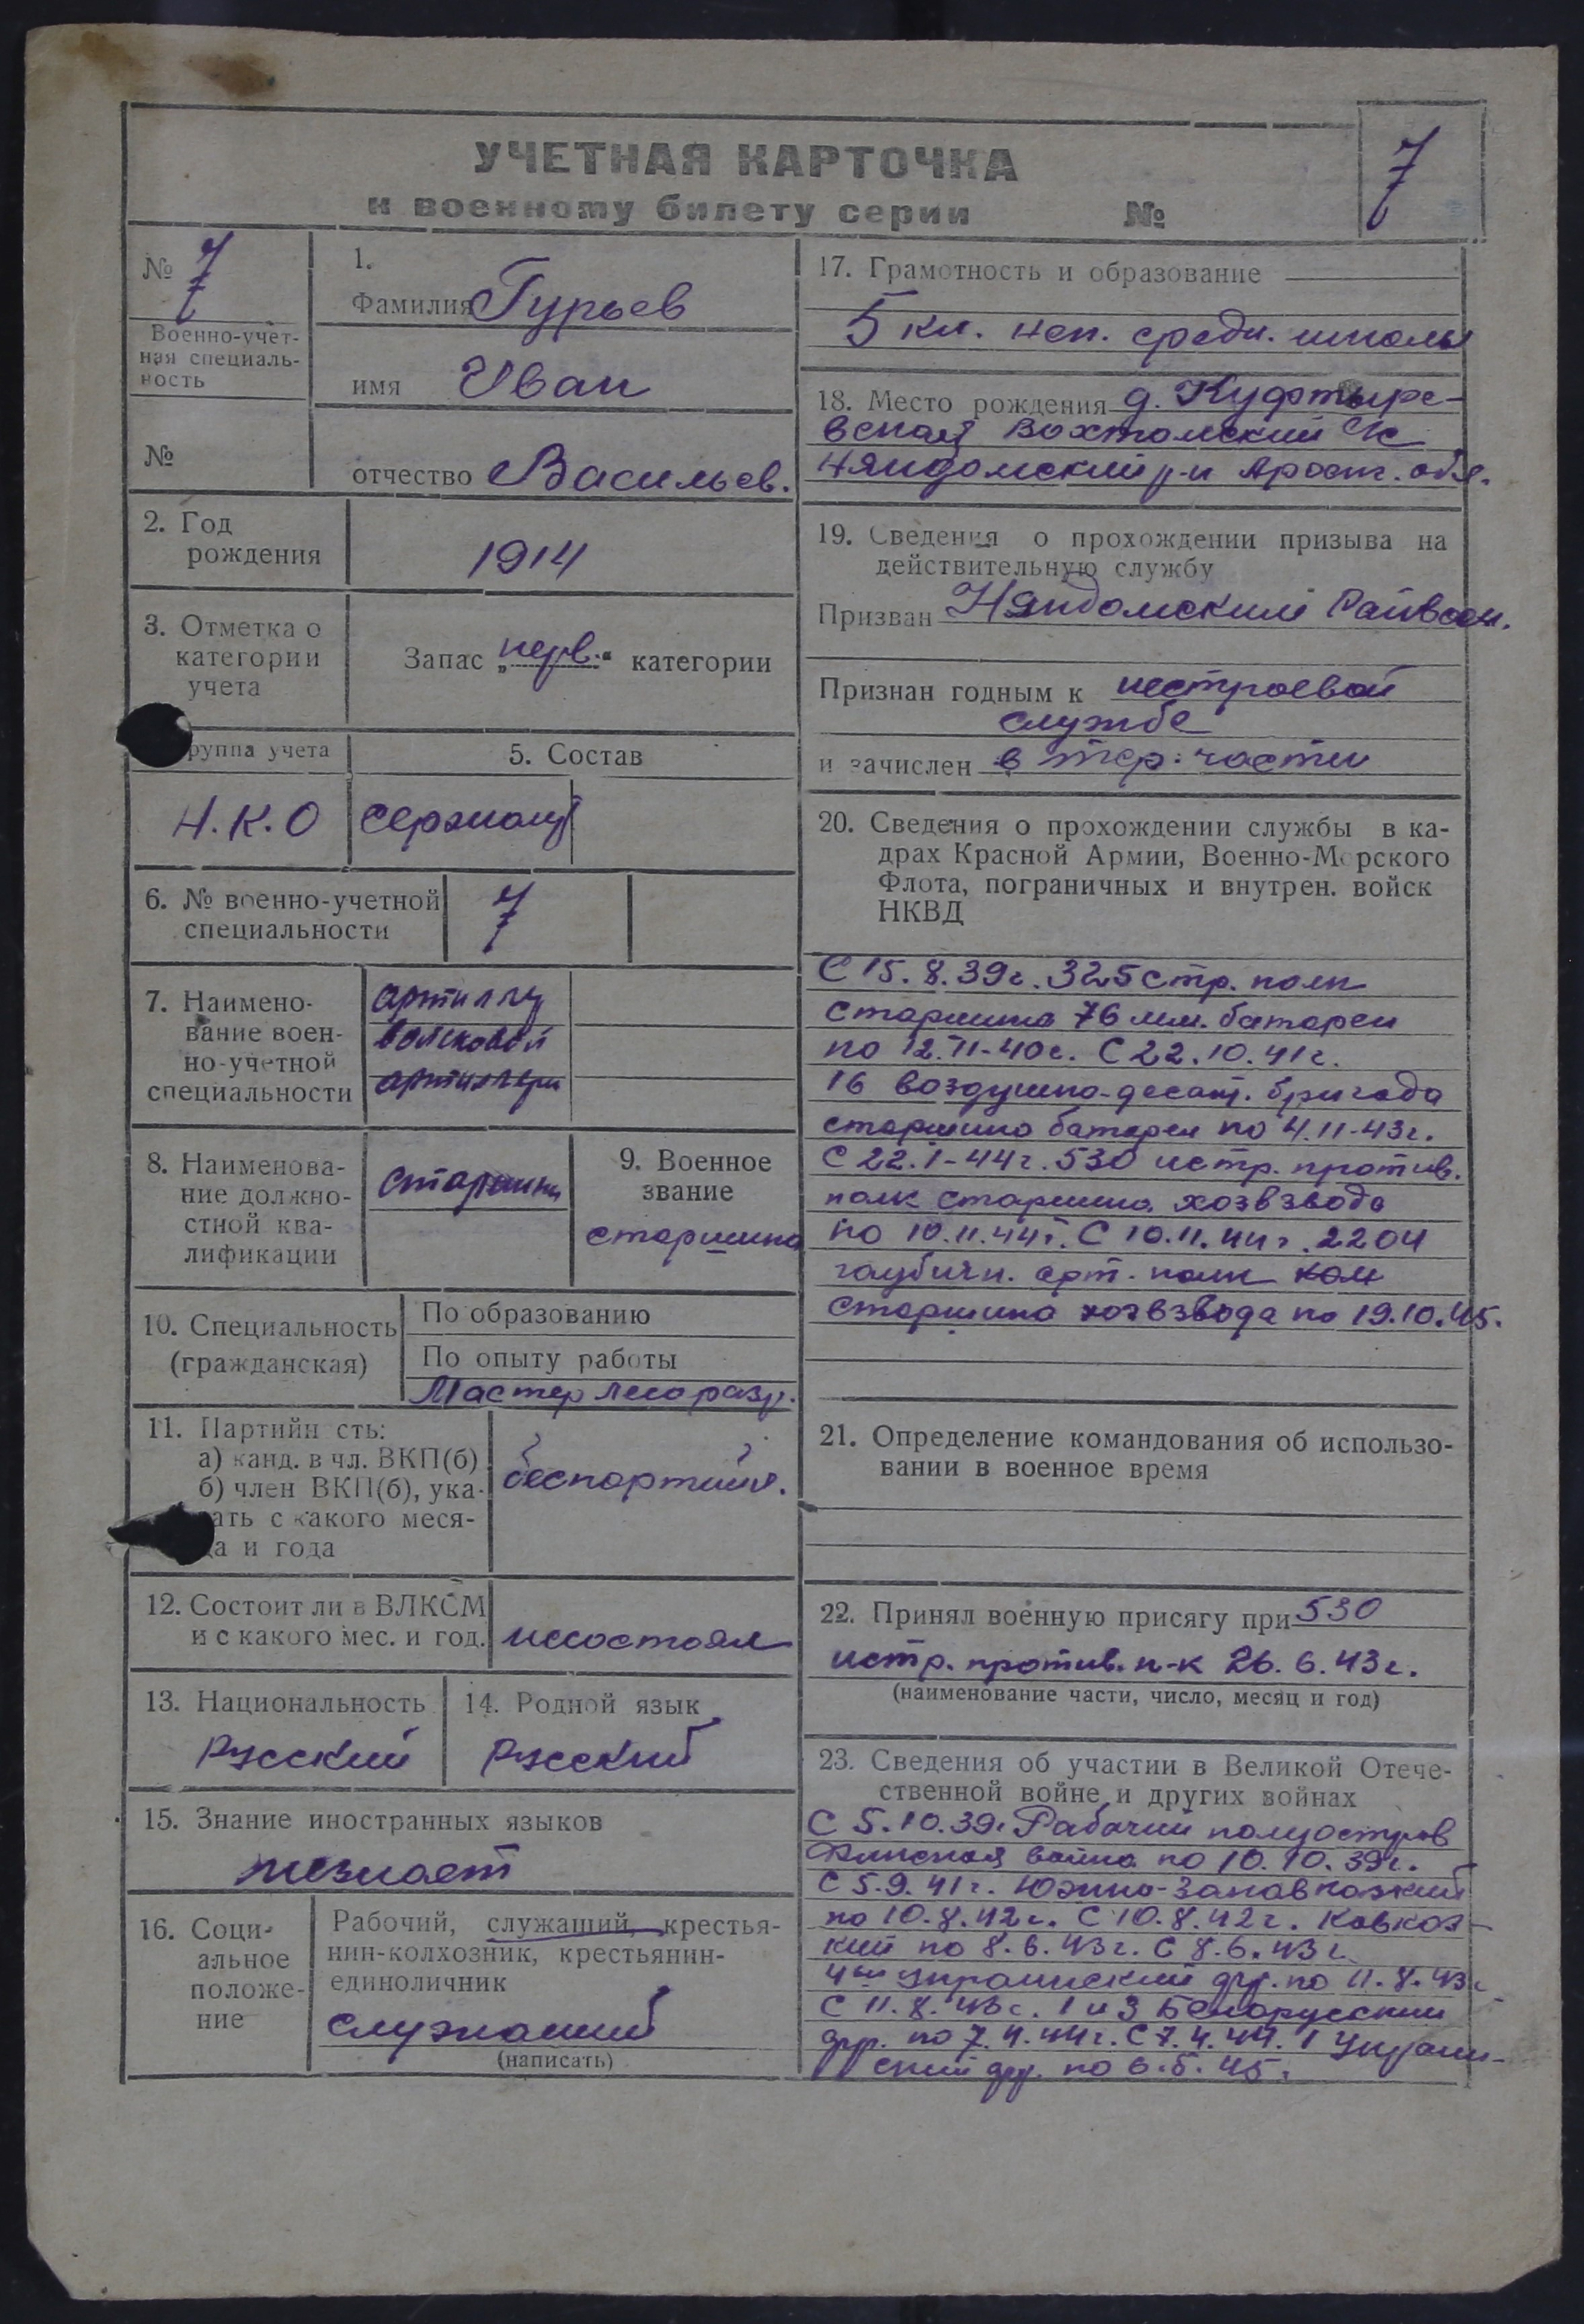 УЧЕТНАЯ КАРТОЧКА
к военному билету серии №
7
№ 7
Военно-учет-
ная специаль-
ность
№
1.
Фамилия Гурьев
имя Иван
отчество Васильев.
2. Год
рождения
1914
3. Отметка о
категории
учета
Запас „перв.“ категории
руппа учета
Н.К.О
5. Состав
сержант
6. № военно-учетной
специальности
7
7. Наимено-
вание воен-
но-учетной
специальности
войсковой
8. Наименова-
ние должно-
стной ква-
лификации
старшина
9. Военное
звание
старшина
10. Специальность
(гражданская)
По образованию
По опыту работы
Мастер лесоразр.
11. Партийн сть:
а) канд. в чл. ВКП(б)
б) член ВКП(б), ука-
ать с какого меся-
ца и года
беспартийн.
12. Состоит ли в ВЛКСМ
и с какого мес. и год.
несостоял
13. Национальность
русский
14. Родной язык
русский
15. Знание иностранных языков
незнает
16. Соци-
альное
положе-
ние
Рабочий, служащий, крестья-
нин-колхозник, крестьянин-
единоличник
служащий
(написать)
17. Грамотность и образование
5 кл. неп. средн. школы
18. Место рождения д. Куфтыре-
вская Вохтомский с/с
Няндомский р-н Арханг. обл.
19. Сведения о прохождении призыва на
действительную службу
Призван Няндомский Райвоен.
Признан годным к нестроевой
службе
и зачислен в тер. части
20. Сведения о прохождении службы в ка-
драх Красной Армии, Военно-Морского
Флота, пограничных и внутрен. войск
НКВД
С 15.8.39г. 325 стр. полк
старшина 76 мм. батареи
по 12.11-40г. С 22.10.41г.
16 воздушно-десант. бригада
старшина батареи по 4.11-43г.
С 22.1-44г. 530 истр. против.
полк старшина хозвзвода
по 10.11.44г. С 10.11.44г. 2204
гаубичн. арт. полк ком
старшина хозвзвода по 19.10.45.
21. Определение командования об использо-
вании в военное время
22. Принял военную присягу при 530
истр. против. п-к 26.6.43г.
(наименование части, число, месяц и год)
23. Сведения об участии в Великой Отече-
ственной войне и других войнах
С 5.10.39г Рабочий полуостров
Финская война по 10.10.39г.
С 5.9.41г. Южно-Закавказкий
по 10.8.42г. С 10.8.42г. Кавказ-
кий по 8.6.43г. С 8.6.43г
4ый украинский фр. по 11.8.43г
С 11.8.43г. 1 и 3 Белорусский
фр. по 7.4.44г. С 7.4.44. 1 Украин-
ский фр. по 6.5.45.